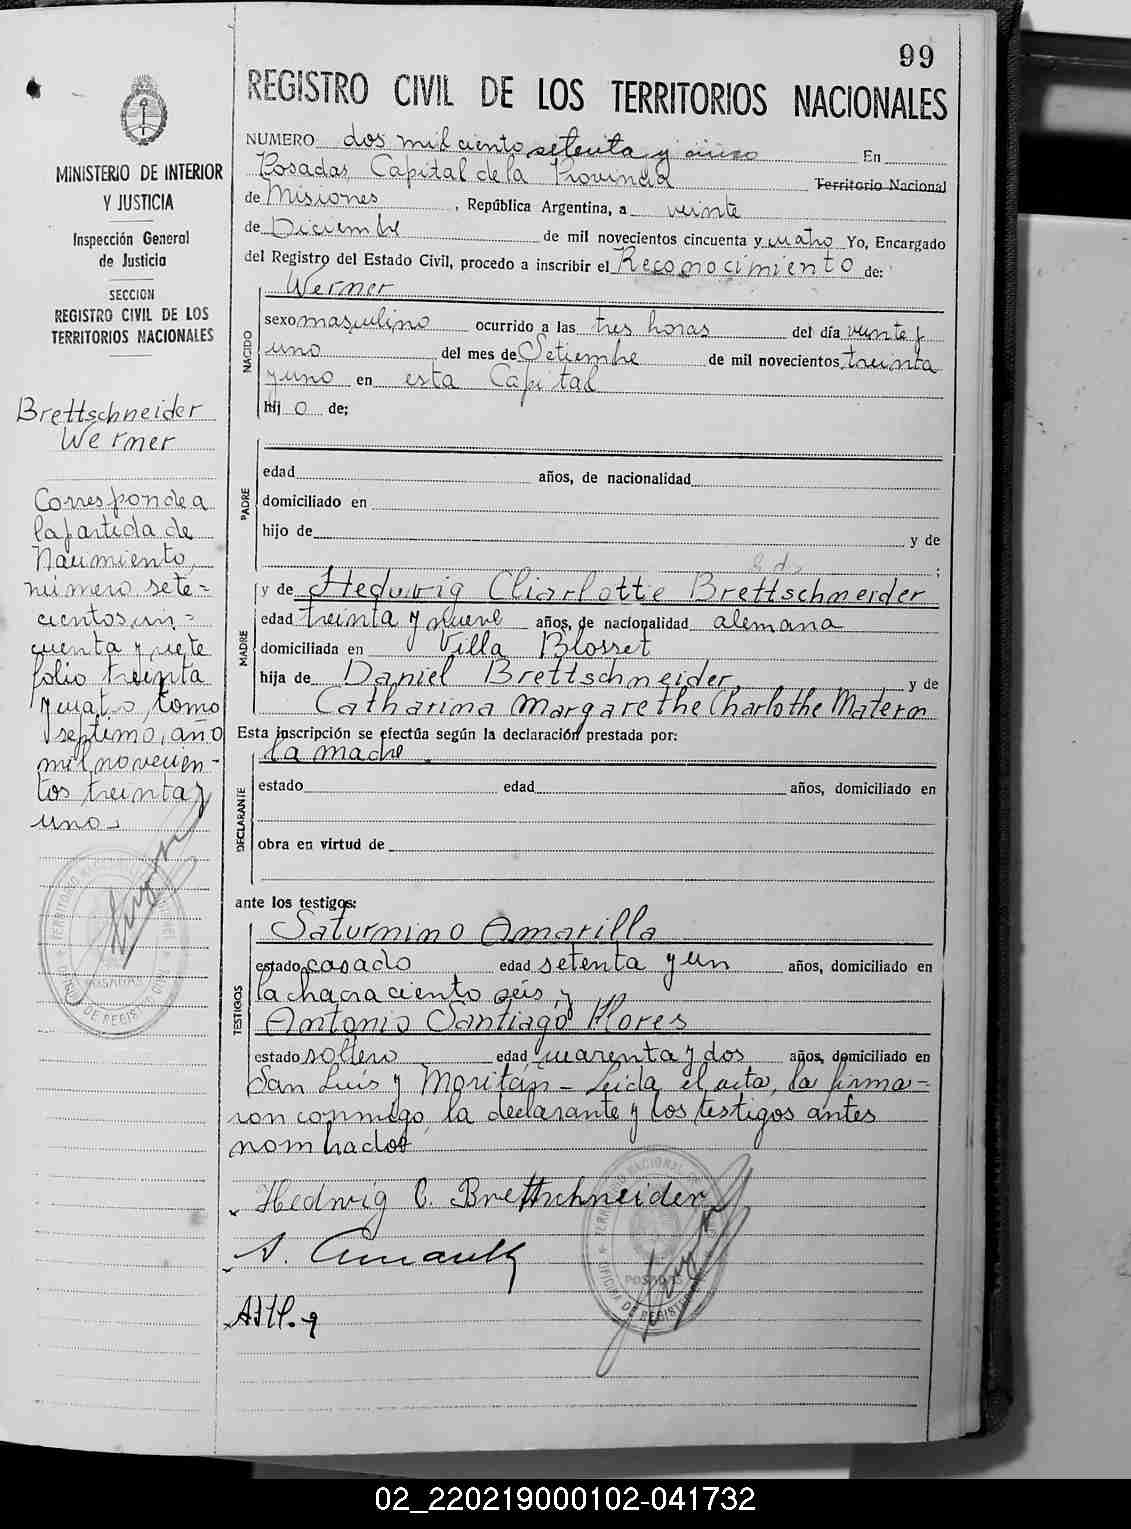 99
REGISTRO CIVIL DE LOS TERRITORIOS NACIONALES
MINISTERIO DE INTERIOR
Y JUSTICIA
Inspección General
de Justicia
SECCION
REGISTRO CIVIL DE LOS
TERRITORIOS NACIONALES
Brettschneider
Werner
Corresponde a
la partida de
Nacimiento,
número sete=
cientos cin=
cuenta y siete
folio treinta
y cuatro, tomo
septimo, año
mil novecien-
tos treinta y
uno
NUMERO dos mil ciento setenta y cinco En
Posadas Capital de la Provincia Territorio Nacional
de Misiones, República Argentina, a veinte
de Diciembre de mil novecientos cincuenta y cuatro Yo, Encargado
del Registro del Estado Civil, procedo a inscribir el Reconocimiento de:
NACIDO
Werner
sexo masculino ocurrido a las tres horas del día veinte y
uno del mes de Setiembre de mil novecientos treinta
y uno en esta Capital
hij o de;
PADRE
edad años, de nacionalidad
domiciliado en
hijo de y de
;
MADRE
y de Hedwig Charlotte Brettschneider
edad treinta y nueve años, de nacionalidad alemana
domiciliada en Villa Blosset
hija de Daniel Brettschneider y de
Catharina Margarethe Charlothe Matern
Esta inscripción se efectúa según la declaración prestada por:
DECLARANTE
la madre
estado edad años, domiciliado en
obra en virtud de
ante los testigos:
TESTIGOS
Saturnino Amarilla
estado casado edad setenta y un años, domiciliado en
la chacra ciento seis, y
Antonio Santiago Flores
estado soltero edad cuarenta y dos años, domiciliado en
San Luis y Moritán - Leida el acta, la firma=
ron conmigo, la declarante y los testigos antes
nombrados
Hedwig C. Brettschneider
POSADAS
OFICINA DE REGISTRO CIVIL
02_220219000102-041732